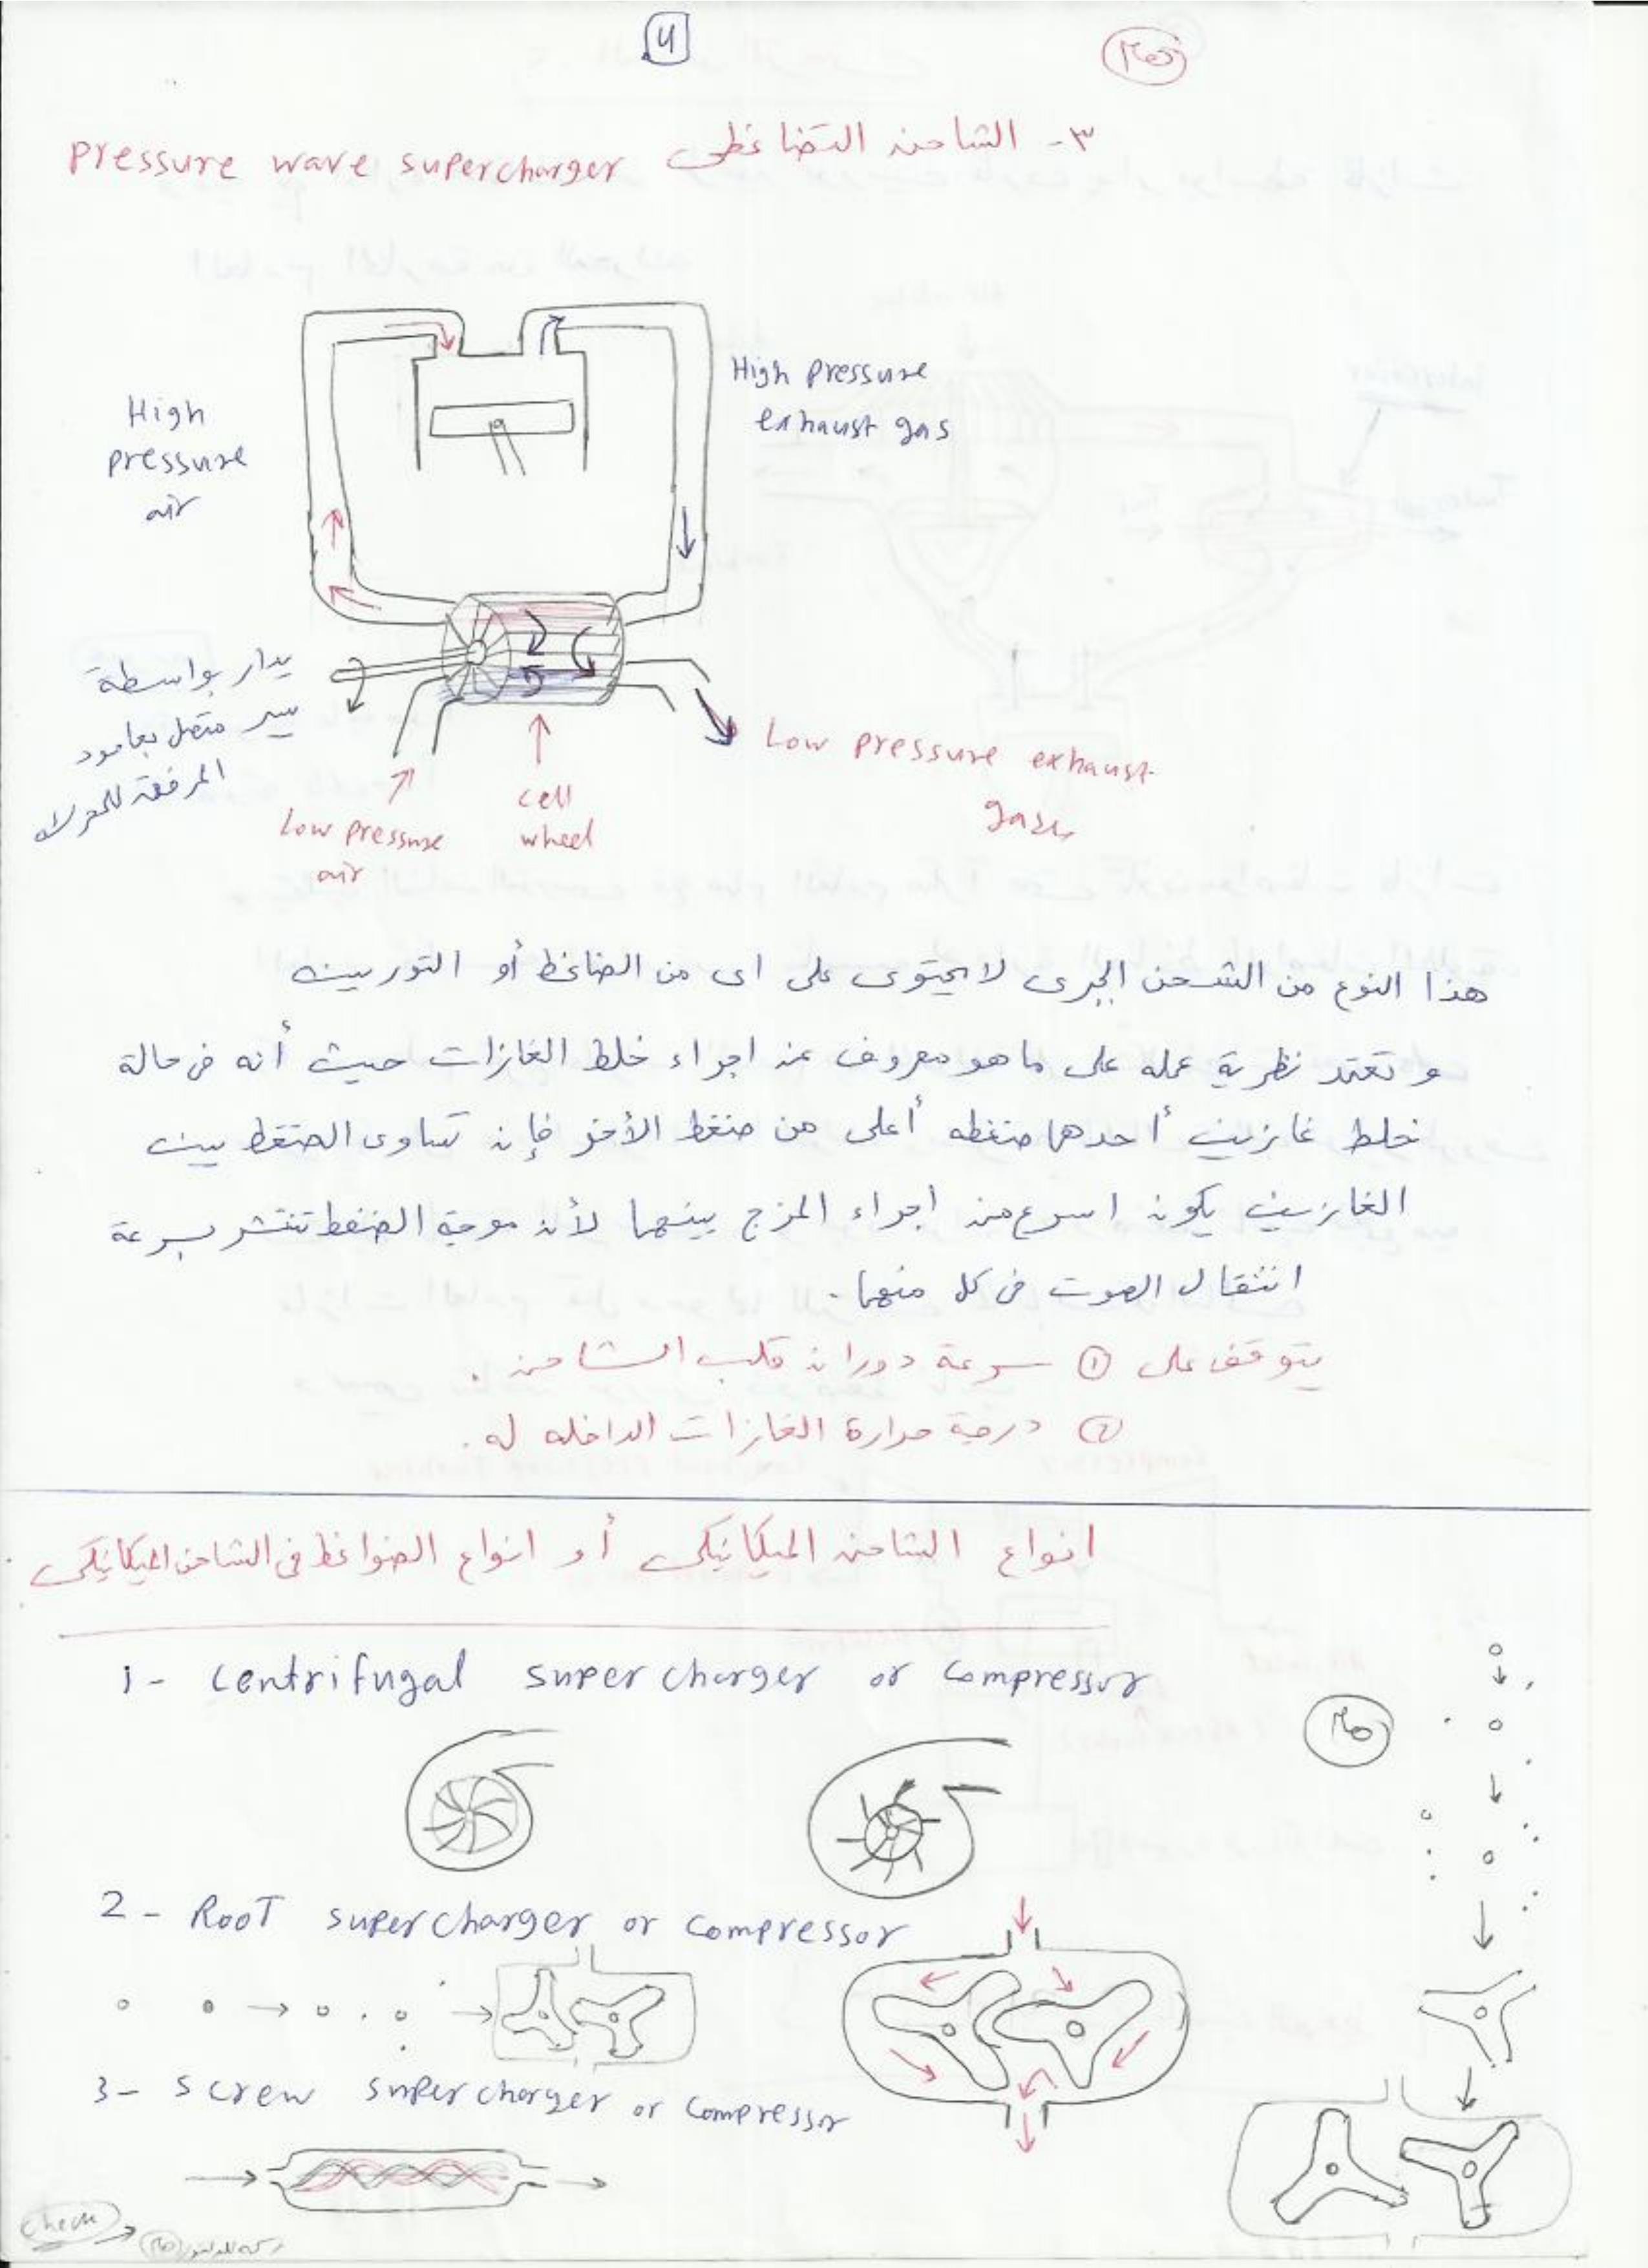 4
٣- الشاحن التضاغطى pressure wave supercharger
High pressure exhaust gas
High pressure air
يدار بواسطة
سير متصل بعامود
المرفق للمحرك
Low pressure exhaust gases
cell wheel
Low pressure air
هذا النوع من الشحن الجبرى لا يحتوى على اى من الضاغط أو التوربينه
و تعتمد نظرية عمله على ما هو معروف عند اجراء خلط الغازات حيث أنه فى حالة
خلط غازين أحدهما ضغطه أعلى من ضغط الأخر فإن تساوى الضغط بين
الغازين يكون اسرع من اجراء المزج بينهما لأن موجة الضغط تنتشر بسرعة
انتقال الصوت فى كل منهما.
يتوقف على ① سرعة دوران قلب الشاحن.
② درجة حرارة الغازات الداخله له.
انواع الشاحن الميكانيكى أو انواع الضواغط فى الشاحن الميكانيكى.
1- Centrifugal supercharger or compressor
2- RooT supercharger or compressor
3- screw supercharger or compressor
check